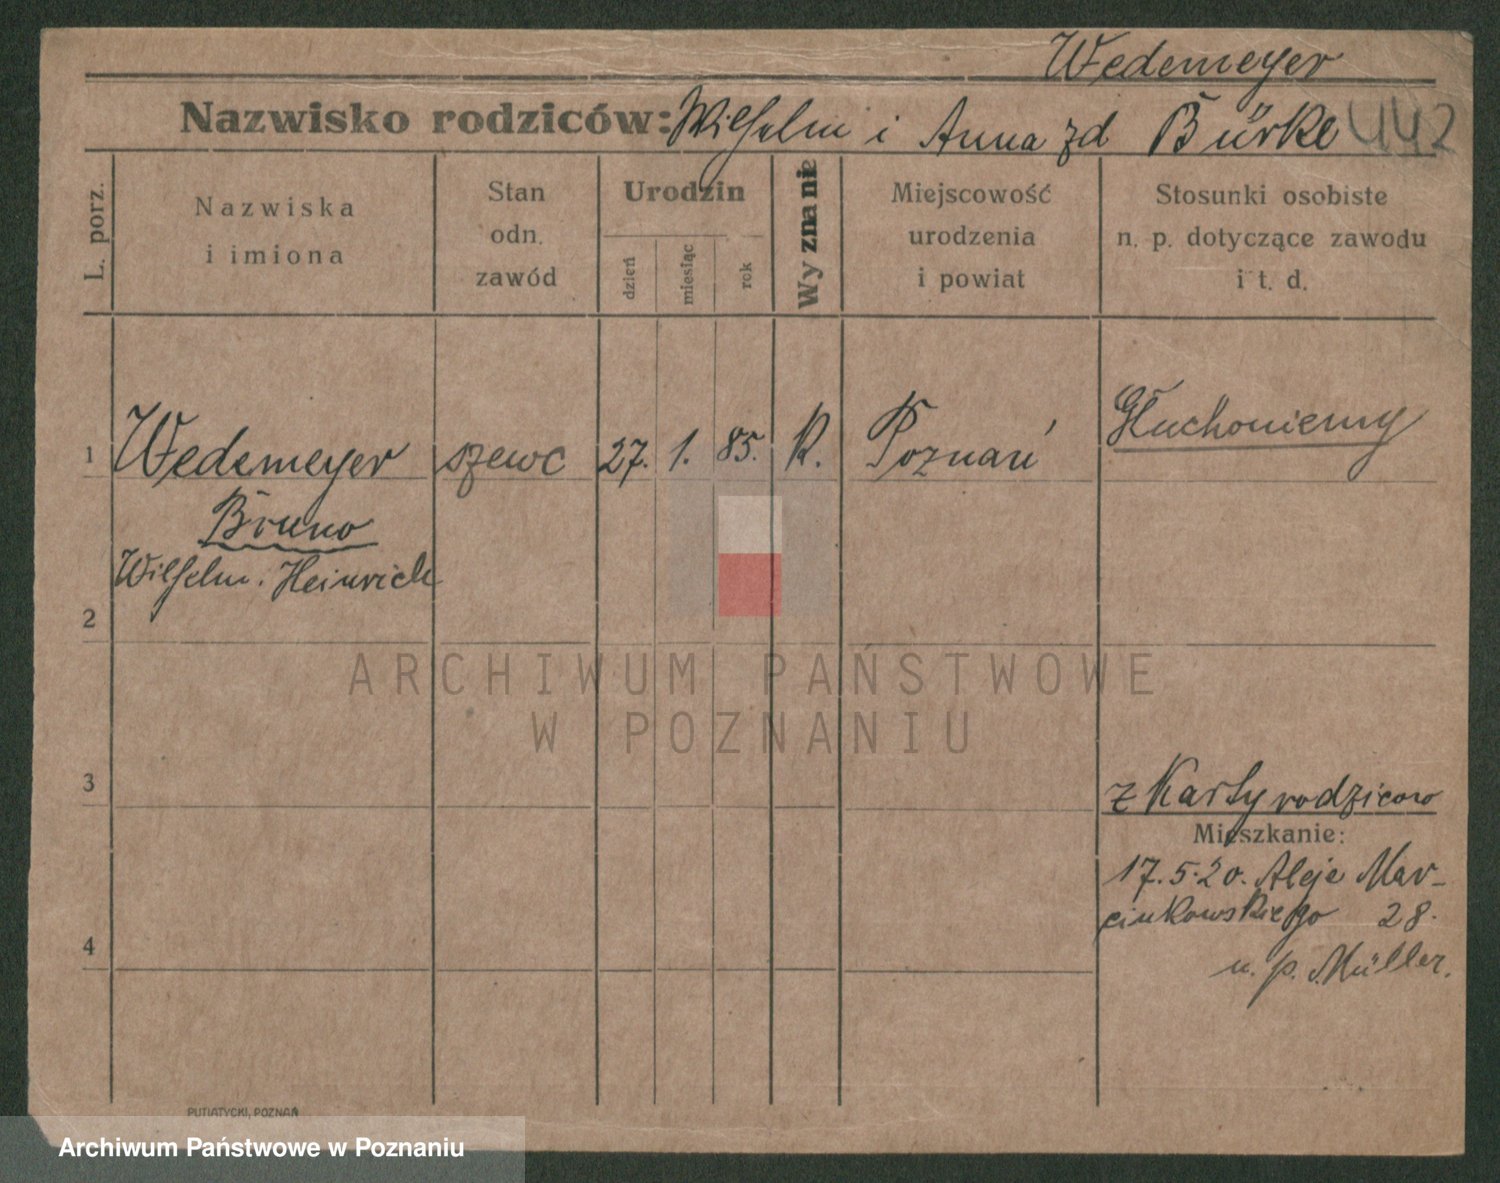 Wedemeyer
Nazwisko rodziców: Wilhelm i Anna zd Bürke 442
L. porz.
Nazwiska
i imiona
Stan
odn.
zawód
Urodzin
dzień
miesiąc
rok
Wyznanie
Miejscowość
urodzenia
i powiat
Stosunki osobiste
n. p. dotyczące zawodu
i t. d.
1 Wedemeyer szewc 27. 1. 85. R. Poznań Głuchoniemy
Bruno
Wilhelm. Heinrich
2
ARCHIWUM PAŃSTWOWE
W POZNANIU
3
z Karty rodziców
Mieszkanie:
17.5.20. Aleje Mar-
cinkowskiego 28.
4
u. p. Müller.
PUTIATYCKI, POZNAŃ
Archiwum Państwowe w Poznaniu